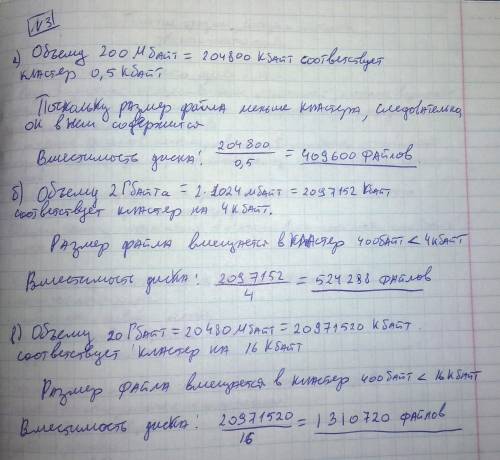 №3
а) Объему 200 Мбайт = 204800 Кбайт соответствует
кластер 0,5 Кбайт
Поскольку размер файла меньше кластера, следовательно
он в нем содержится
Вместимость диска: 204800/0,5 = 409600 файлов
б) Объему 2 Гбайта = 2·1024 мбайт = 2097152 Кбайт
соответствует кластер на 4 кбайт.
Размер файла вмещается в кластер 400байт < 4кбайт
Вместимость диска: 2097152/4 = 524288 файлов
в) Объему 20 Гбайт = 20480 Мбайт = 20971520 Кбайт.
соответствует кластер на 16 Кбайт
Размер файла вмещается в кластер 400байт < 16 Кбайт
Вместимость диска: 20971520/16 = 1310720 файлов